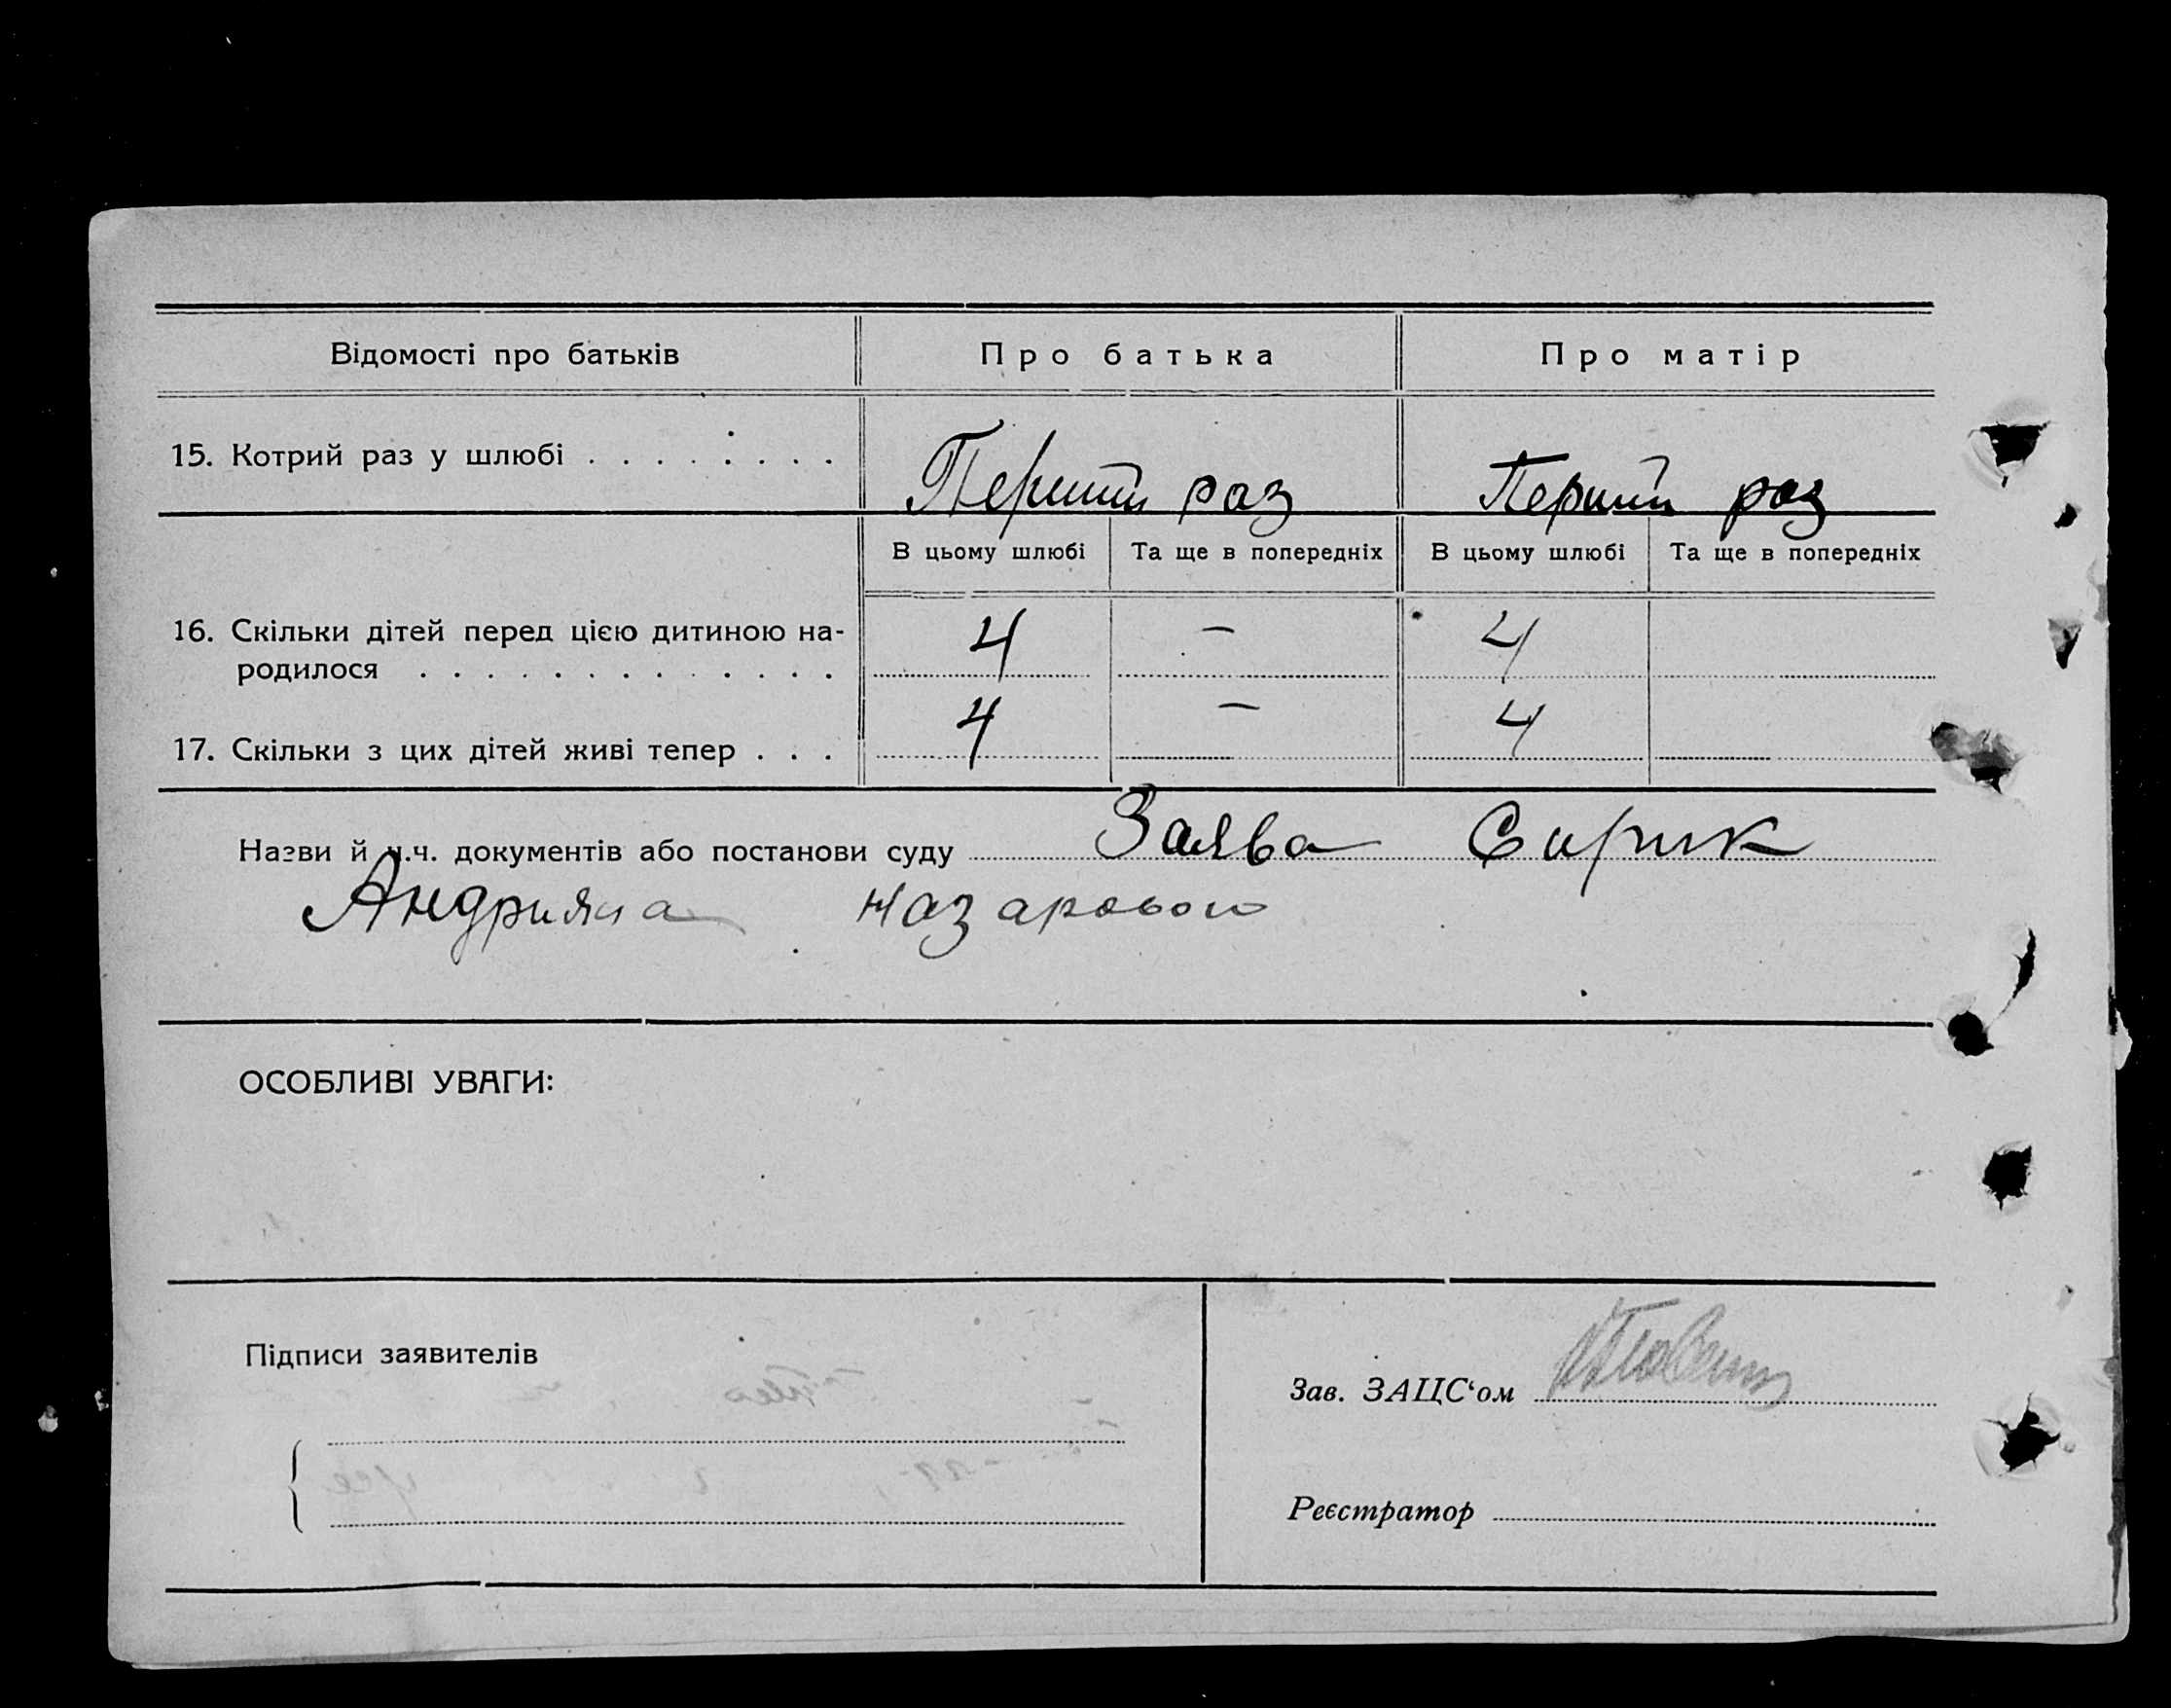 Відомості про батьків Про батька Про матір
15. Котрий раз у шлюбі . . . . . . . . Перший раз Перший раз
В цьому шлюбі Та ще в попередніх В цьому шлюбі Та ще в попередніх
16. Скільки дітей перед цією дитиною на-
родилося . . . . . . . . . . . . . . 4 — 4
17. Скільки з цих дітей живі тепер . . . 4 — 4
Назви й ч.ч. документів або постанови суду Заява Сирик
Андрияна Назарового
ОСОБЛИВІ УВАГИ:
Підписи заявителів
Зав. ЗАЦС‘ом
Реєстратор